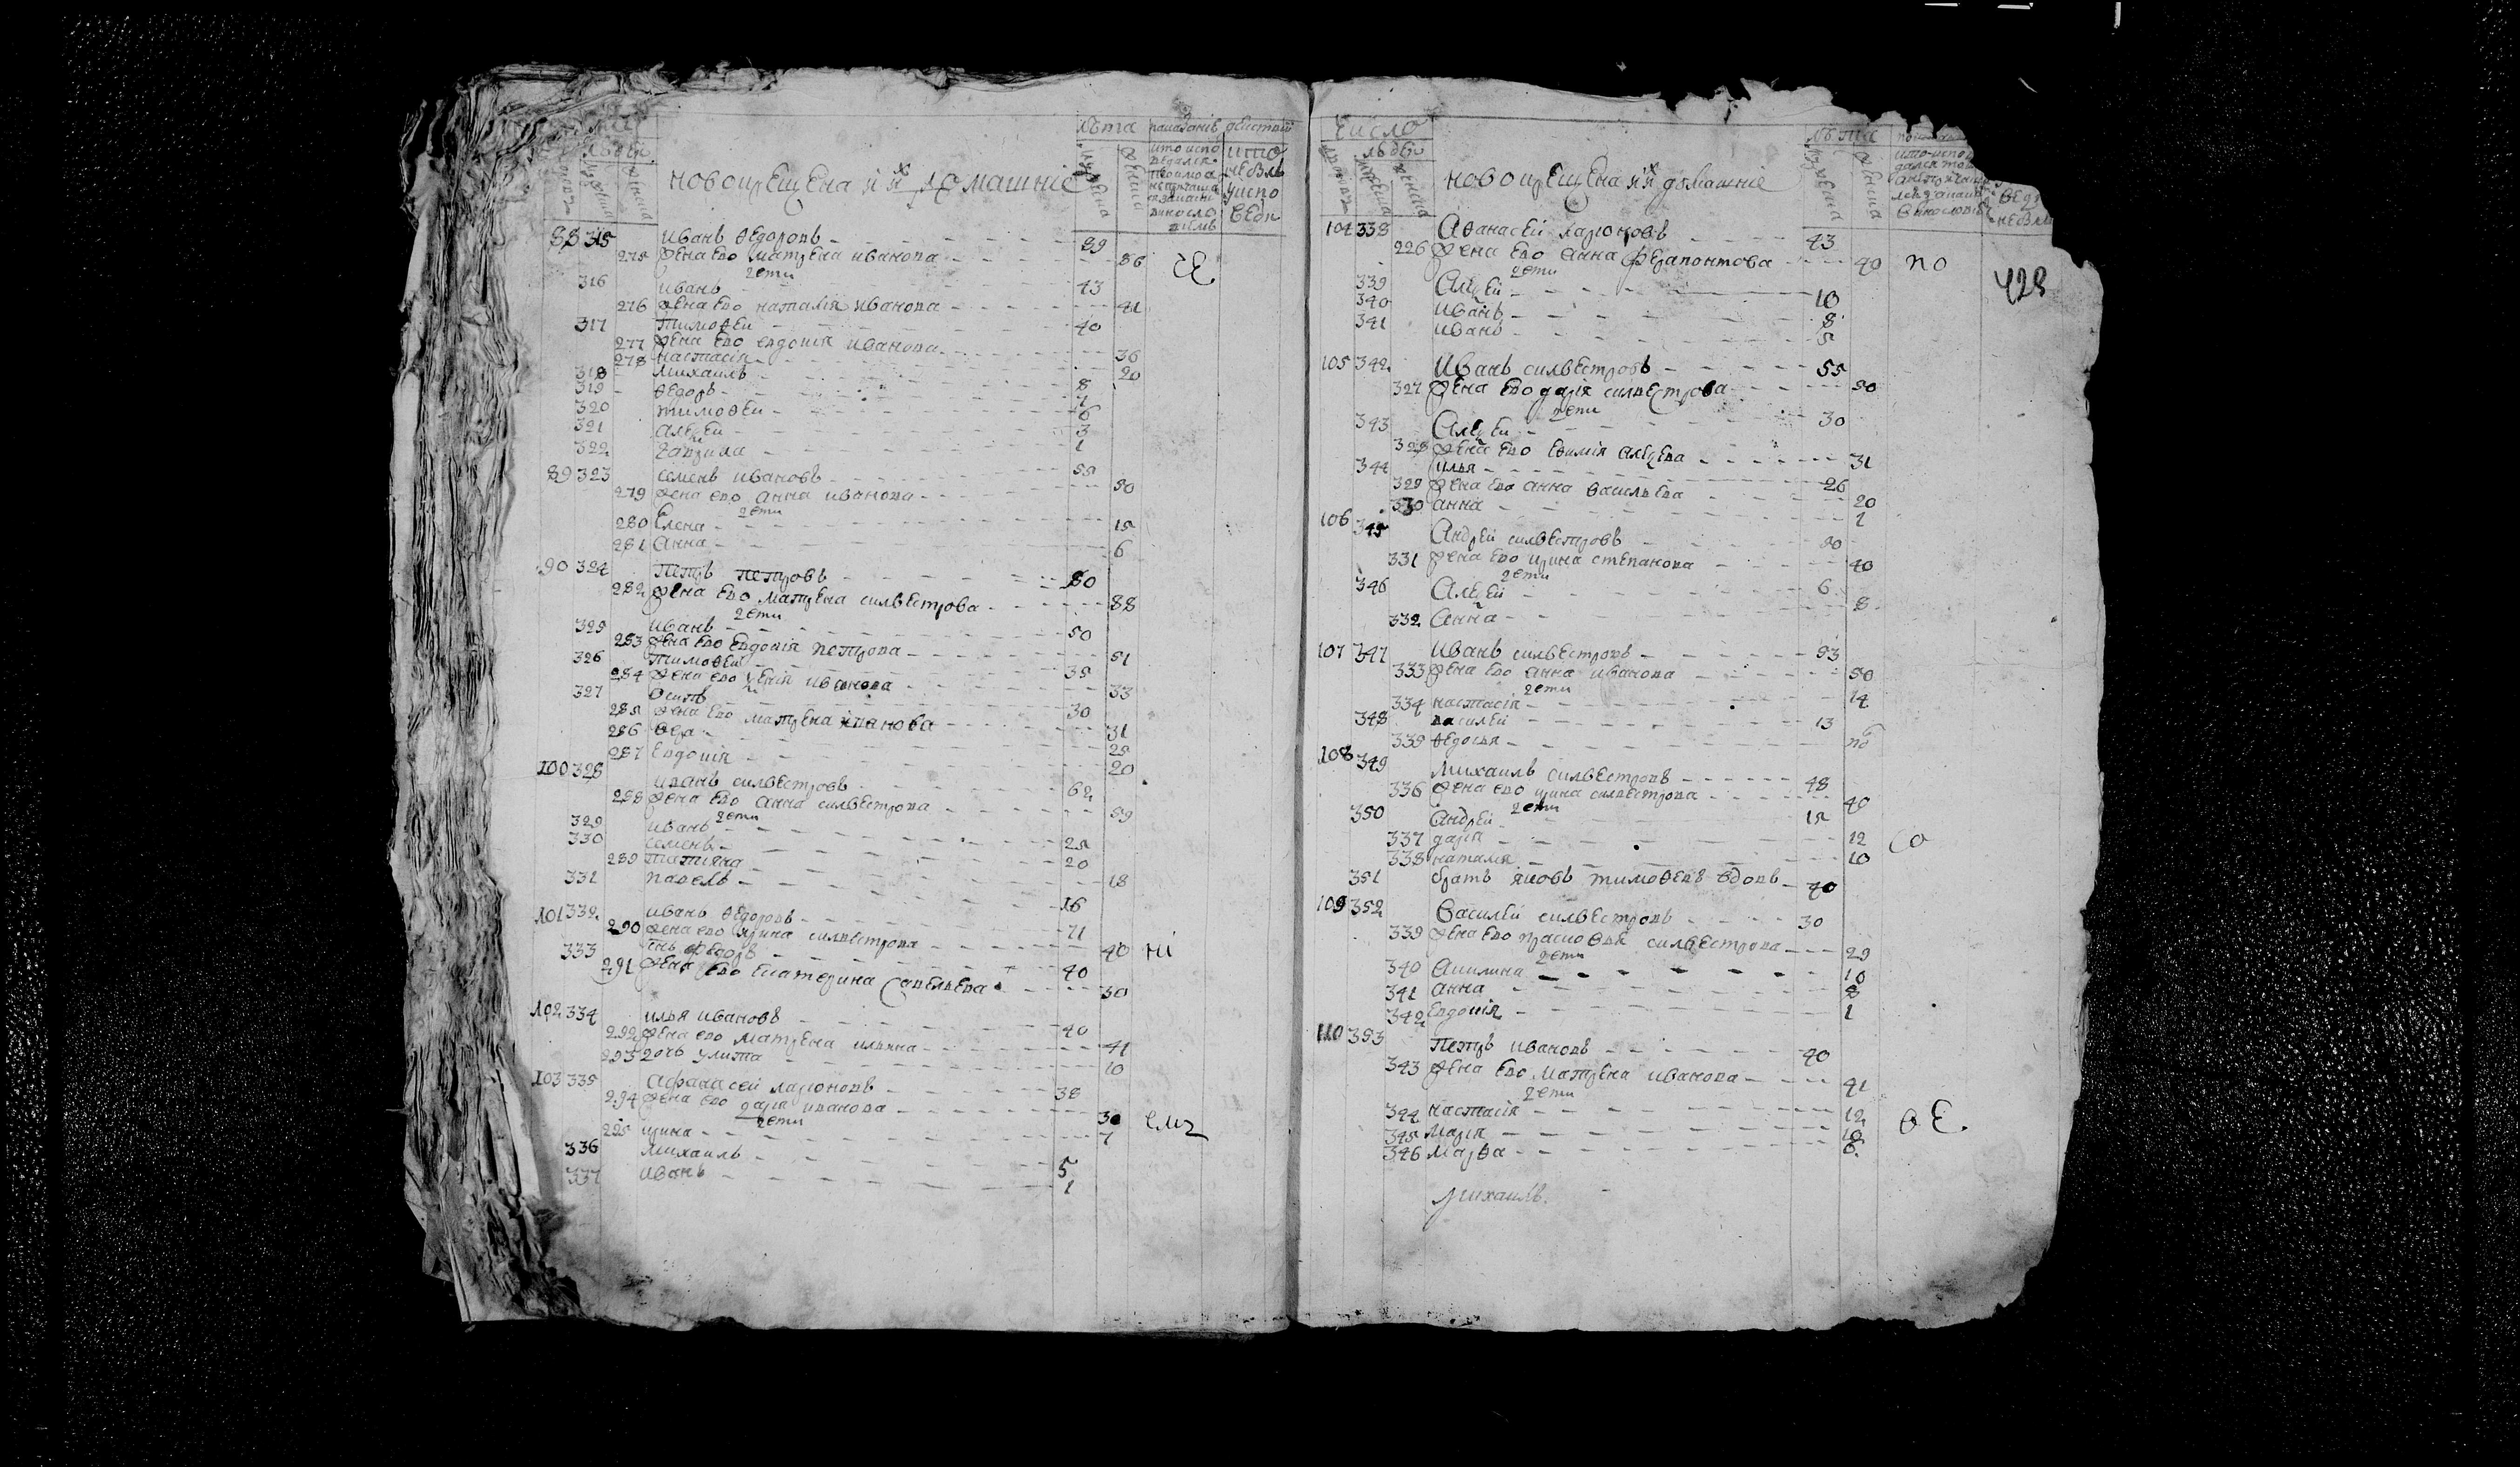 людей
новокрещена и их домашнiе
лѣта показанiе дѣйства
мужеска женска
88 315 Иванъ Ѳедоровъ 89
275 жена ево Матрена Иванова 86 се
дети
316 Иванъ 43
276 жена ево Наталiя Иванова 41
317 Тимоѳей 40
277 жена ево Евдокiя Иванова 36
278 Настасiя 20
318 Михаилъ 8
319 Ѳедоръ 7
320 Тимоѳей 6
321 Алеѯей 3
322 Гаврила 1
89 323 Семенъ Ивановъ 55
279 жена ево Анна Иванова 50
дети
280 Елена 15
281 Анна 6
90 324 Петръ Петровъ 80
282 жена ево Матрена Силвестрова 88
дети
325 Иванъ 50
283 жена ево Евдокiя Петрова 51
326 Тимоѳей 35
284 жена ево Ѯенiя Иванова 33
327 Осипъ 30
285 жена ево Матрена Иванова 31
286 Ѳекл 25
287 Евдокiя 20
100 328 Иванъ Силвестровъ 62
288 жена ево Анна Силвестрова 59
дети
329 Иванъ 25
330 Семенъ 20
289 Татiяна 18
331 Павелъ 16
101 332 Иванъ Ѳедоровъ 71
290 жена ево Ирина Силвестрова 40 нi
333 Снъ Федоръ 40
291 жена ево Екатерина Савельева 30
102 334 Илья Ивановъ 40
292 жена ево Матрена Ильина 41
293 дочь Улита 10
103 335 Афанасей Ларiоновъ 38
294 жена ево Дарiя Иванова 30
дети
225 Ирина 7
336 Михаилъ 5
337 Иванъ 1
Число
людей
новокрещена и их домашнiе
лѣта
мужеска женска
104 338 Аѳанасей Ларiоновъ 43
226 жена ево Анна Ферапонтова 40 по
дети
428
339 Алеѯей 10
340 Иванъ 8
341 Иванъ 5
105 342 Иванъ Силвестровъ 55
327 жена ево Дарiя Силвестрова 50
дети
343 Алеѯей 30
328 жена ево Еѳимiя Алеѯева 31
344 Илья 26
329 жена ево Анна Васильева 20
330 Анна 1
106 345 Андрей Силвестровъ 50
331 жена ево Ирина Степанова 40
дети
346 Алеѯей 6
332 Анна 8
107 347 Иванъ Силвестровъ 53
333 жена ево Анна Иванова 50
дети
334 Настасiя 14
348 Василей 13
339 Ѳедосья
108 349 Михаилъ Силвестровъ 48
336 жена ево Ирина Силвестрова 40
дети
350 Андрей 15
337 Дарiя 12 со
338 Наталiя 10
351 братъ Яковъ Тимоѳеевъ вдовъ 40
109 352 Василей Силвестровъ 30
339 жена ево Прасковья Силвестрова 29
дети
340 Акилина 10
341 Анна 8
342 Евдокiя 1
110 353 Петръ Ивановъ 40
343 жена ево Матрена Иванова 41
дети
344 Настасiя 12
345 Марiя 10 ѳе.
346 Марѳа 6
Михаилъ.